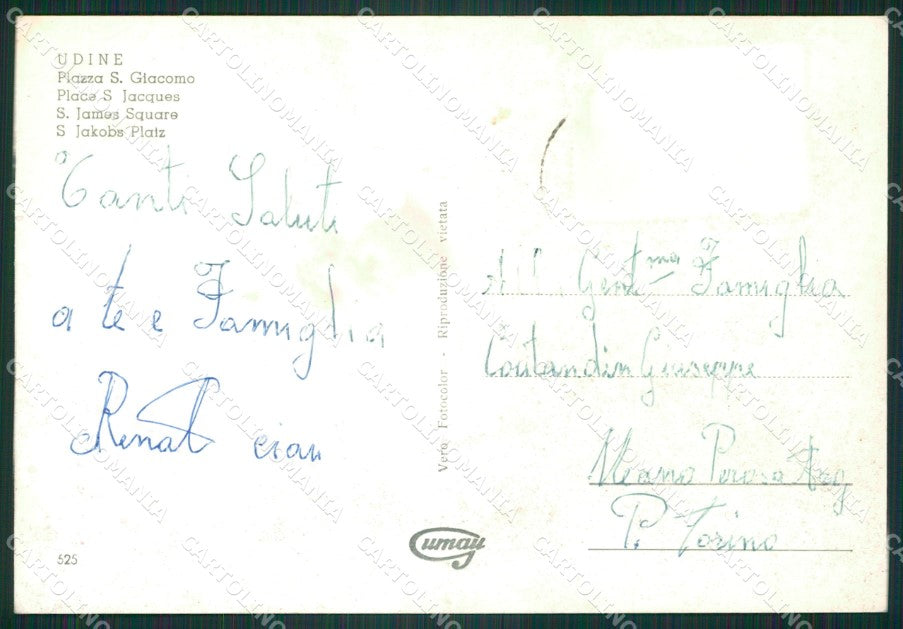 UDINE
Piazza S. Giacomo
Place S Jacques
S. James Square
S Jakobs Platz
Tanti Saluti
a te e Famiglia
Renato ciao
525
Vero Fotocolor - Riproduzione vietata
Cumay
All Gent.ma Famiglia
Coutandin Giuseppe
Meano Perosa Arg
P. Torino
CARTOLINOMANIA